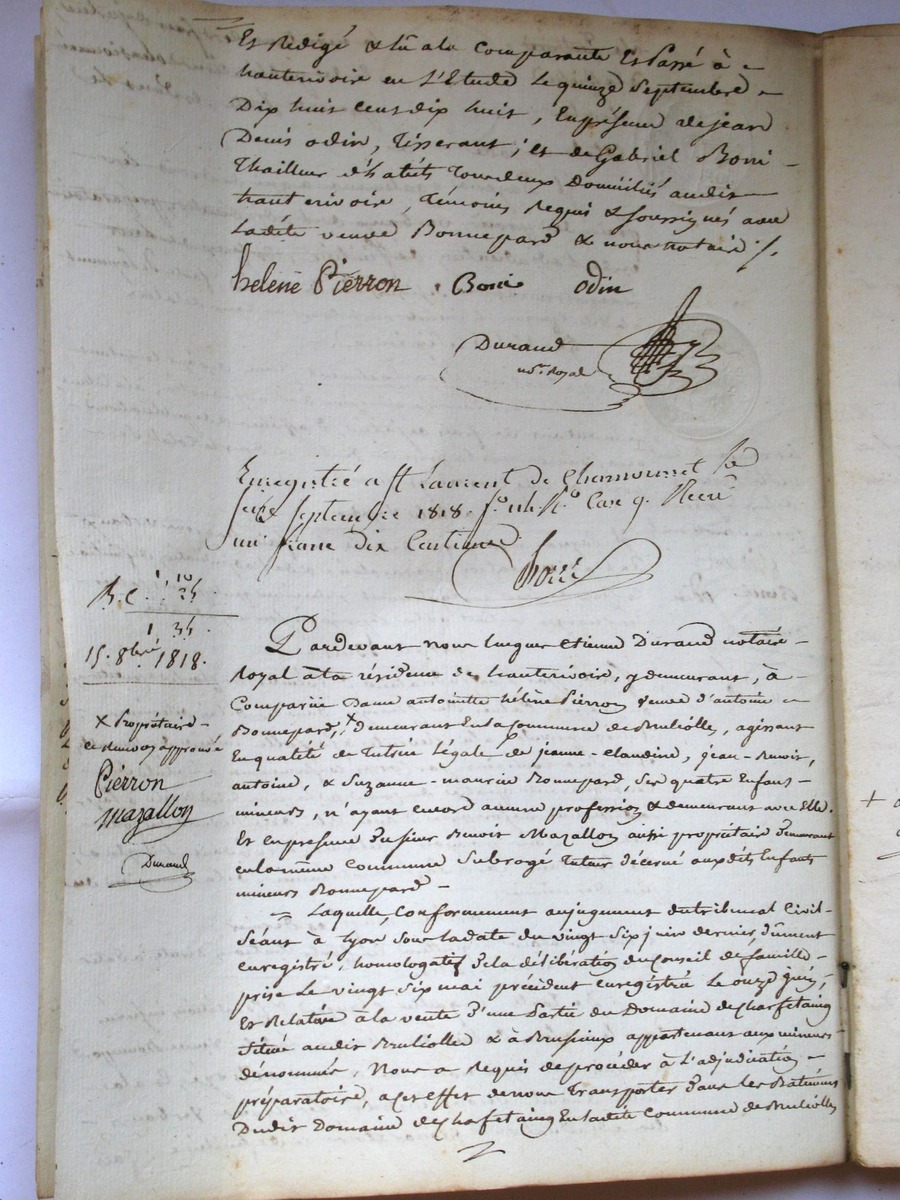 Est Rédigé & lû a la Comparante Et Passé à
hauterivoire en L'Etude Le quinze Septembre
Dix huit cent dix huit, En présence de jean
Denis odin, Tisserant; et de Gabriel Boni
Thailleur d'habits Tous deux Domiciliés audit
hauterivoire, Témoins Requis & soussignés avec
Ladite veuve Bonnepard & nous notaire ./.
heléne Pierron . Boni odin
Durand
not. Royal
Enregistré a St Laurent de Chamousset le
seize Septembre 1818. f.o Case 9. Recu
un franc dix Centimes
1. 10
B.C. . 25
1 35.
15. 8bre 1818.
Pardevant nous hugues Etienne Durand notaire
Royal à la résidence de hauterivoire, y demeurant, à
Comparüe Dame antoinette hélène Pierron veuve d'antoine
Bonnepard, x Demeurant En la Commune de Brulliolle, agissant
En qualité de Tutrice Légale de jeanne-Claudine, jean-Benoit,
antoine, & Suzanne-maurice Bonnepard, Ses quatre Enfans
mineurs, n'ayant encore aucune profession & demeurant avec Elle.
Et en presence du sieur Benoit Mazallon aussi propriétaire Demeurant
en la même Commune Subrogé Tuteur décerné auxdits Enfants
mineurs Bonnepard
x Propriétaire
ce renvoy approuvé
Pierron
mazallon
Durand
= Laquelle, Conformement au jugement du tribunal Civil
Séant à Lyon sous la date du vingt Six juin dernier, dûment
enregistré, homologatif de la délibération du Conseil de famille
prise Le vingt Six mai précédent enregistrée Le onze juin,
Et Relative à la vente d'une Partie du Domaine de Charfetaing
Situé audit Brulliolle & à Brusieux appartenant aux mineurs
dénommés, Nous a Requis de procéder à L'adjudication
préparatoire, a cet effet de nous Transporter Dans les Batimens
Dudit Domaine de Charfetaing En ladite Commune de Brulliolle
+